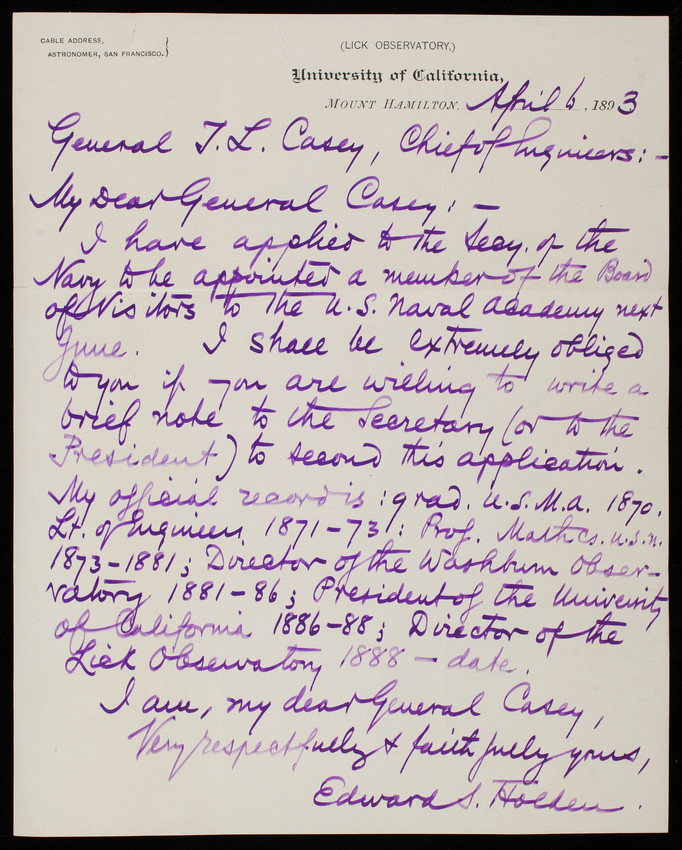 CABLE ADDRESS,
ASTRONOMER, SAN FRANCISCO.}
(LICK OBSERVATORY,)
University of California,
MOUNT HAMILTON, April 6, 1893
General T. L. Casey, Chief of Engineers: -
My Dear General Casey: -
I have applied to the Secy. of the
Navy to be appointed a member of the Board
of Visitors to the U.S. Naval Academy next
June. I shall be extremely obliged
to you if you are willing to write a
brief note to the Secretary (or to the
President) to second this application.
My official record is: grad. U.S.M.A. 1870.
Lt. of Engineers, 1871-73: Prof. Mathcs. U.S.N.
1873-1881; Director of the Washburn Obser-
vatory 1881-86; President of the University
of California 1886-88; Director of the
Lick Observatory 1888 - date.
I am, my dear General Casey,
Very respectfully & faithfully yours,
Edward S. Holden.